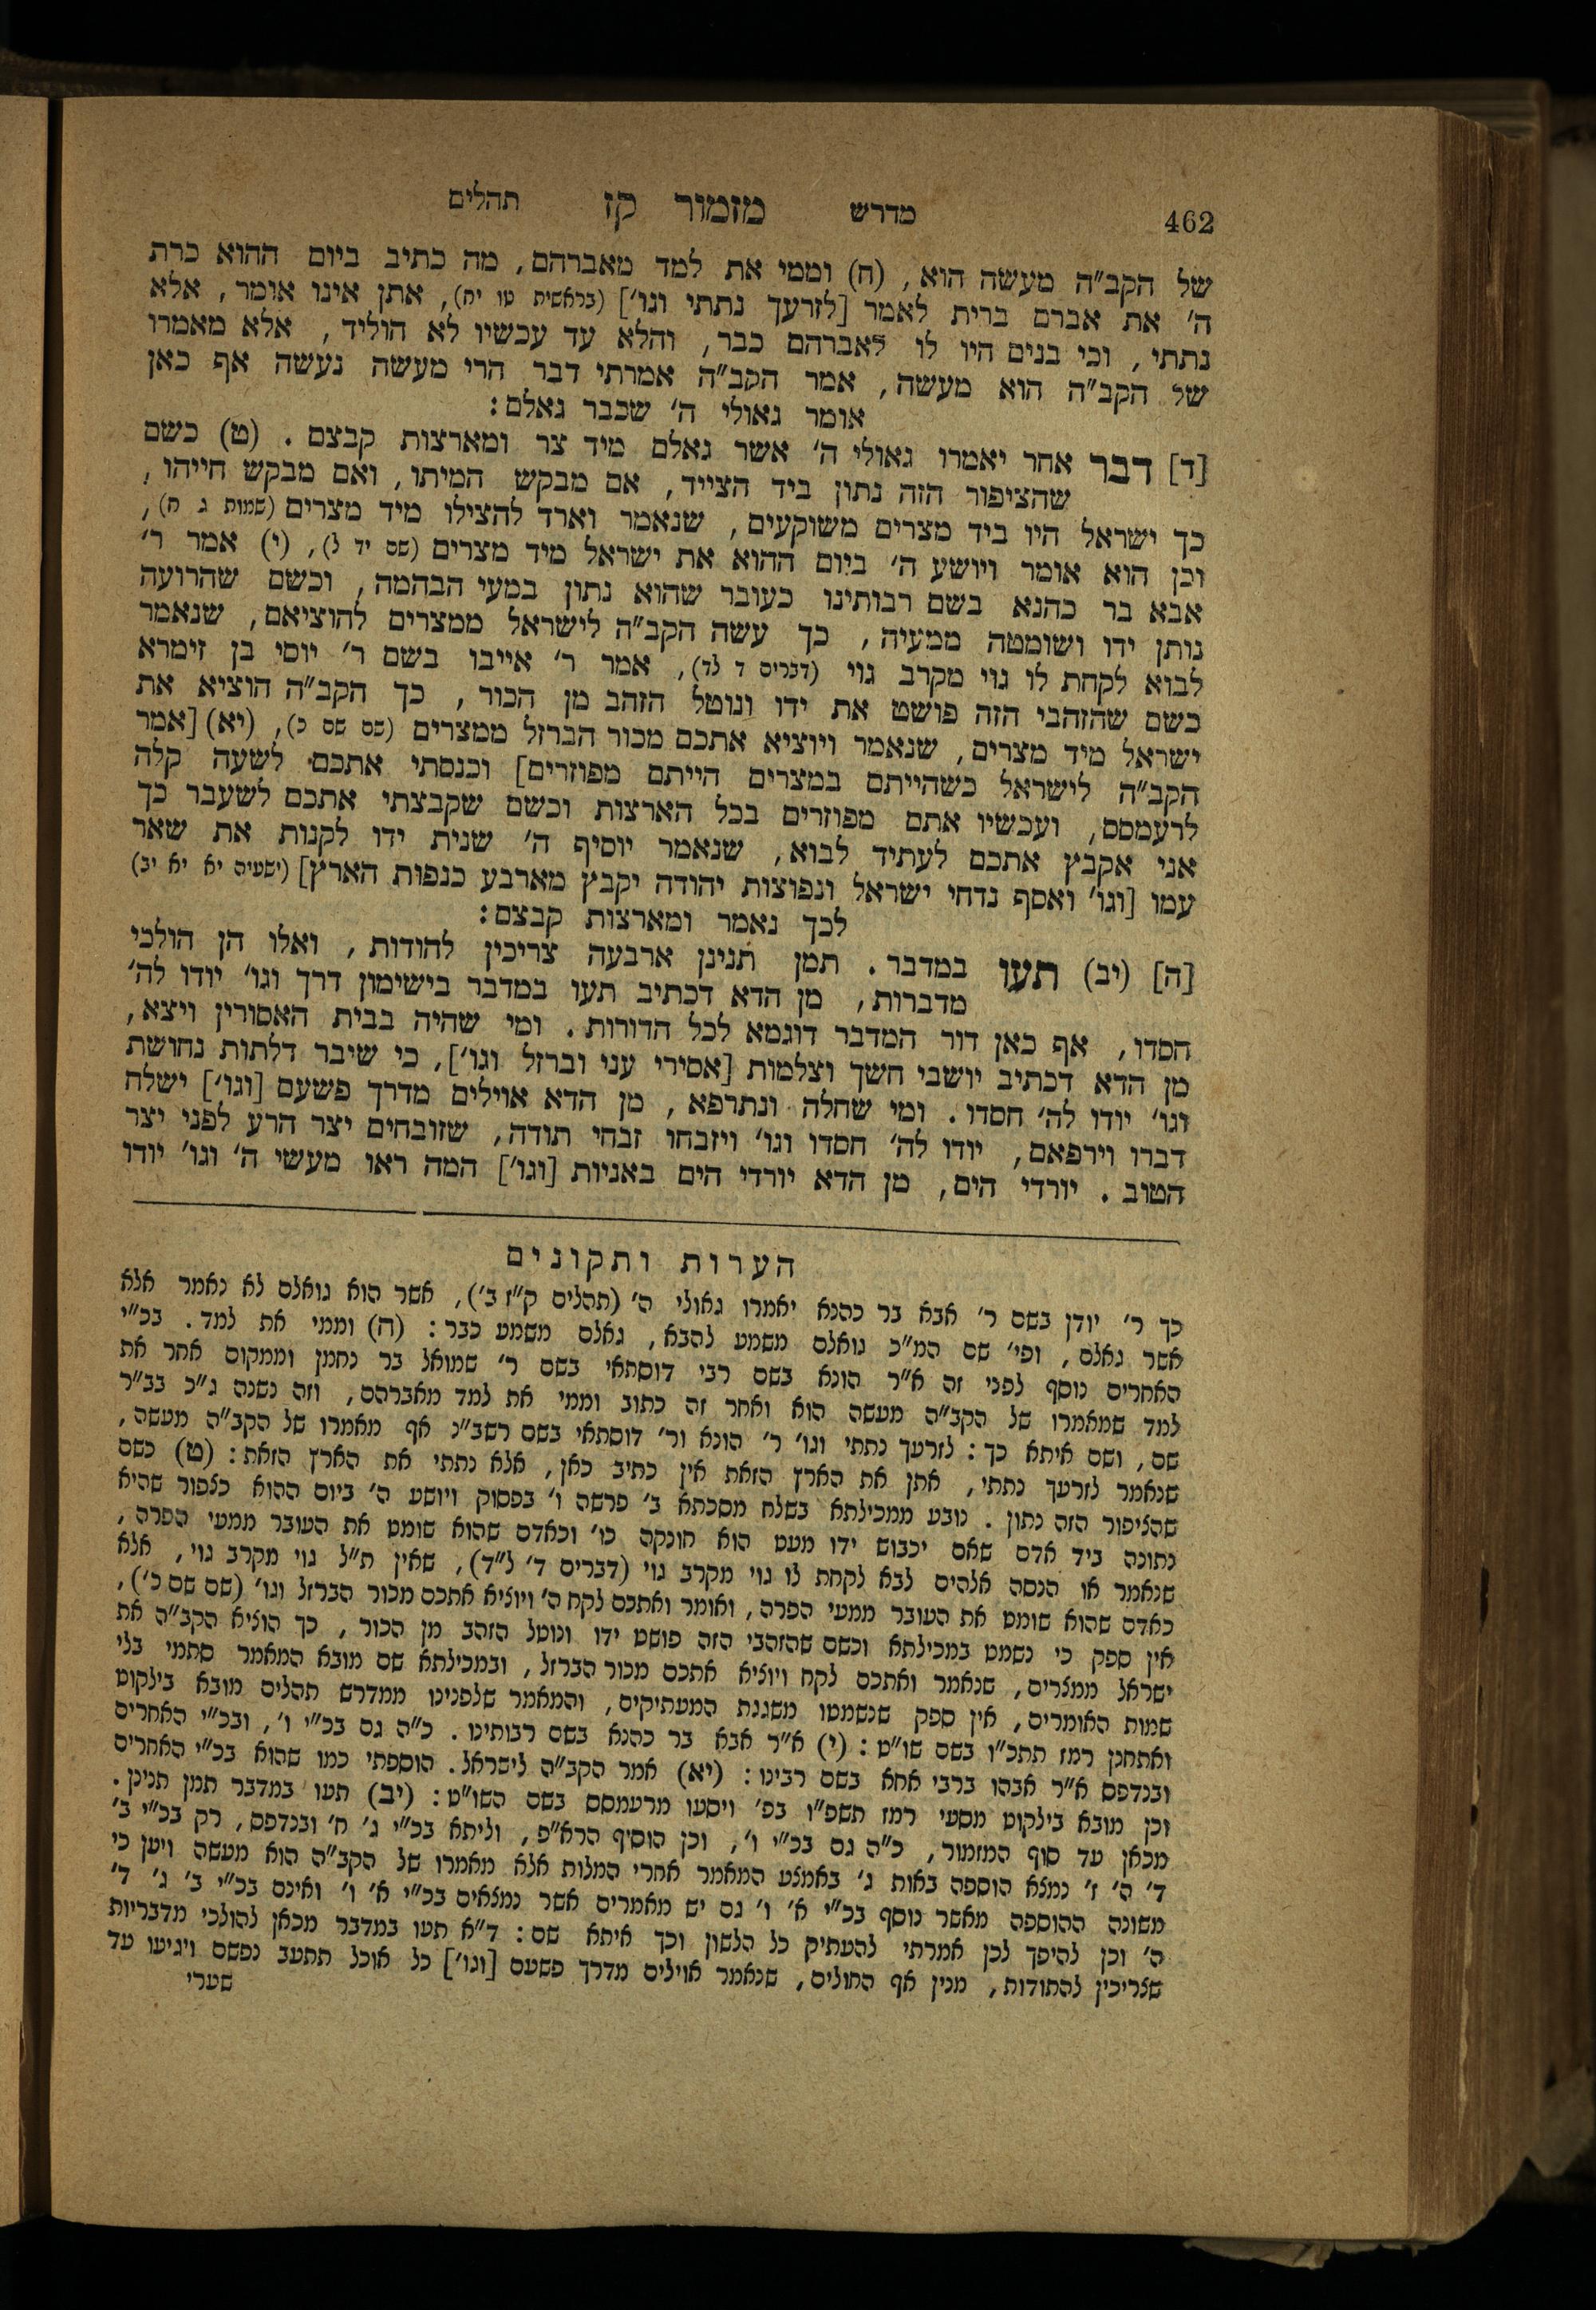 462 מדרש מזמור קז תהלים
של הקב״ה מעשה הוא, (ח) וממי את למד מאברהם, מה כתיב ביום ההוא כרת
ה׳ את אברם ברית לאמר [לזרעך נתתי וגו׳] (בראשית טו יח), אתן אינו אומר, אלא
נתתי, וכי בנים היו לו לאברהם כבר, והלא עד עכשיו לא הוליד, אלא מאמרו
של הקב״ה הוא מעשה, אמר הקב״ה אמרתי דבר הרי מעשה נעשה אף כאן
אומר גאולי ה׳ שכבר גאלם:
[ד] דבר אחר יאמרו גאולי ה׳ אשר גאלם מיד צר ומארצות קבצם. (ט) כשם
שהציפור הזה נתון ביד הצייד, אם מבקש המיתו, ואם מבקש חייהו,
כך ישראל היו ביד מצרים משוקעים, שנאמר וארד להצילו מיד מצרים (שמות ג ח),
וכן הוא אומר ויושע ה׳ ביום ההוא את ישראל מיד מצרים (שם יד ל), (י) אמר ר׳
אבא בר כהנא בשם רבותינו כעובר שהוא נתון במעי הבהמה, וכשם שהרועה
נותן ידו ושומטה ממעיה, כך עשה הקב״ה לישראל ממצרים להוציאם, שנאמר
לבוא לקחת לו גוי מקרב גוי (דברים ד לד), אמר ר׳ אייבו בשם ר׳ יוסי בן זימרא
כשם שהזהבי הזה פושט את ידו ונוטל הזהב מן הכור, כך הקב״ה הוציא את
ישראל מיד מצרים, שנאמר ויוציא אתכם מכור הברזל ממצרים (שם שם כ), (יא) [אמר
הקב״ה לישראל כשהייתם במצרים הייתם מפוזרים] וכנסתי אתכם לשעה קלה
לרעמסס, ועכשיו אתם מפוזרים בכל הארצות וכשם שקבצתי אתכם לשעבר כך
אני אקבץ אתכם לעתיד לבוא, שנאמר יוסיף ה׳ שנית ידו לקנות את שאר
עמו [וגו׳ ואסף נדחי ישראל ונפוצות יהודה יקבץ מארבע כנפות הארץ] (ישעיה יא יא יב)
לכך נאמר ומארצות קבצם:
[ה] (יב) תעו במדבר. תמן תנינן ארבעה צריכין להודות, ואלו הן הולכי
מדברות, מן הדא דכתיב תעו במדבר בישימון דרך וגו׳ יודו לה׳
חסדו, אף כאן דור המדבר דוגמא לכל הדורות. ומי שהיה בבית האסורין ויצא,
מן הדא דכתיב יושבי חשך וצלמות [אסירי עני וברזל וגו׳], כי שיבר דלתות נחושת
וגו׳ יודו לה׳ חסדו. ומי שחלה ונתרפא, מן הדא אוילים מדרך פשעם [וגו׳] ישלח
דברו וירפאם, יודו לה׳ חסדו וגו׳ ויזבחו זבחי תודה, שזובחים יצר הרע לפני יצר
הטוב. יורדי הים, מן הדא יורדי הים באניות [וגו׳] המה ראו מעשי ה׳ וגו׳ יודו
הערות ותקונים
כך ר׳ יודן בשם ר׳ אבא בר כהנא יאמרו גאולי ה׳ (תהלים ק״ז ב׳), אשר הוא גואלם לא נאמר אלא
אשר גאלם, ופי׳ שם המ״כ גואלם משמע להבא, גאלם משמע כבר: (ח) וממי את למד. בכ״י
האחרים נוסף לפני זה א״ר הונא בשם רבי דוסתאי בשם ר׳ שמואל בר נחמן וממקום אחר את
למד שמאמרו של הקב״ה מעשה הוא ואחר זה כתוב וממי את למד מאברהם, וזה נשנה ג״כ בב״ר
שם, ושם איתא כך: לזרעך נתתי וגו׳ ר׳ הונא ור׳ דוסתאי בשם רשב״נ אף מאמרו של הקב״ה מעשה,
שנאמר לזרעך נתתי, אתן את הארץ הזאת אין כתיב כאן, אלא נתתי את הארץ הזאת: (ט) כשם
שהציפור הזה נתון. נובע ממכילתא בשלח מסכתא ב׳ פרשה ו׳ בפסוק ויושע ה׳ ביום ההוא כצפור שהיא
נתונה ביד אדם שאם יכבוש ידו מעט הוא חונקה כו׳ וכאדם שהוא שומט את העובר ממעי הפרה,
שנאמר או הנסה אלהים לבא לקחת לו גוי מקרב גוי (דברים ד׳ ל״ד), שאין ת״ל גוי מקרב גוי, אלא
כאדם שהוא שומט את העובר ממעי הפרה, ואומר ואתכם לקח ה׳ ויוציא אתכם מכור הברזל וגו׳ (שם שם כ׳),
אין ספק כי נשמט במכילתא וכשם שהזהבי הזה פושט ידו ונוטל הזהב מן הכור, כך הוציא הקב״ה את
ישראל ממצרים, שנאמר ואתכם לקח ויוציא אתכם מכור הברזל, ובמכילתא שם מובא המאמר סתמי בלי
שמות האומרים, אין ספק שנשמטו משגגת המעתיקים, והמאמר שלפנינו ממדרש תהלים מובא בילקוט
ואתחנן רמז תתכ״ו בשם שו״ט: (י) א״ר אבא בר כהנא בשם רבותינו. כ״ה גם בכ״י ו׳, ובכ״י האחרים
ובנדפס א״ר אבהו ברבי אחא בשם רבינו: (יא) אמר הקב״ה לישראל. הוספתי כמו שהוא בכ״י האחרים
וכן מובא בילקוט מסעי רמז תשפ״ו בפ׳ ויסעו מרעמסס בשם השו״ט: (יב) תעו במדבר תמן תנינן.
מכאן עד סוף המזמור, כ״ה גם בכ״י ו׳, וכן הוסיף הרא״פ, וליתא בכ״י ג׳ ח׳ ובנדפס, רק בכ״י ב׳
ד׳ ה׳ ז׳ נמצא הוספה באות ג׳ באמצע המאמר אחרי המלות אלא מאמרו של הקב״ה הוא מעשה ויען כי
משונה ההוספה מאשר נוסף בכ״י א׳ ו׳ גם יש מאמרים אשר נמצאים בכ״י א׳ ו׳ ואינם בכ״י ב׳ ג׳ ד׳
ה׳ וכן להיפך לכן אמרתי להעתיק כל הלשון וכך איתא שם: ד״א תעו במדבר מכאן להולכי מדבריות
שצריכין להתודות, מנין אף החולים, שנאמר אוילים מדרך פשעם [וגו׳] כל אוכל תתעב נפשם ויגיעו עד
שערי